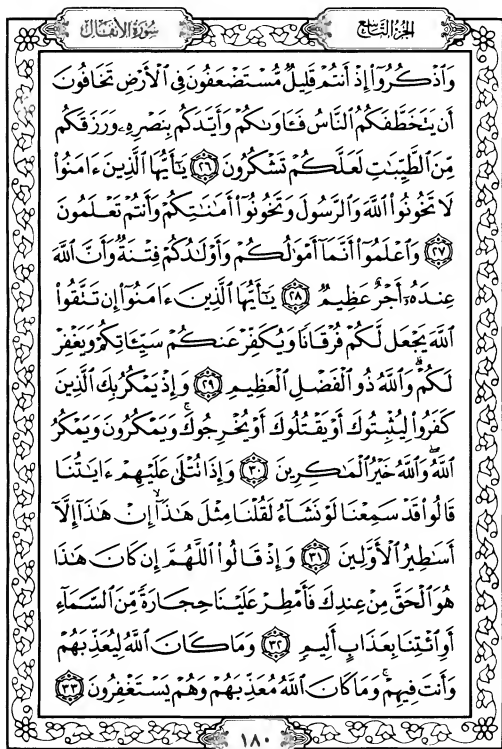 سُورَةُ الأَنفَالِ
الجُزْءُ التَّاسِعُ
وَٱذْكُرُوٓا۟ إِذْ أَنتُمْ قَلِيلٌ مُّسْتَضْعَفُونَ فِى ٱلْأَرْضِ تَخَافُونَ
أَن يَتَخَطَّفَكُمُ ٱلنَّاسُ فَـَٔاوَىٰكُمْ وَأَيَّدَكُم بِنَصْرِهِۦ وَرَزَقَكُم
مِّنَ ٱلطَّيِّبَٰتِ لَعَلَّكُمْ تَشْكُرُونَ ٢٦ يَٰٓأَيُّهَا ٱلَّذِينَ ءَامَنُوا۟
لَا تَخُونُوا۟ ٱللَّهَ وَٱلرَّسُولَ وَتَخُونُوٓا۟ أَمَٰنَٰتِكُمْ وَأَنتُمْ تَعْلَمُونَ
٢٧ وَٱعْلَمُوٓا۟ أَنَّمَآ أَمْوَٰلُكُمْ وَأَوْلَٰدُكُمْ فِتْنَةٌ وَأَنَّ ٱللَّهَ
عِندَهُۥٓ أَجْرٌ عَظِيمٌ ٢٨ يَٰٓأَيُّهَا ٱلَّذِينَ ءَامَنُوٓا۟ إِن تَتَّقُوا۟
ٱللَّهَ يَجْعَل لَّكُمْ فُرْقَانًا وَيُكَفِّرْ عَنكُمْ سَيِّـَٔاتِكُمْ وَيَغْفِرْ
لَكُمْ ۗ وَٱللَّهُ ذُو ٱلْفَضْلِ ٱلْعَظِيمِ ٢٩ وَإِذْ يَمْكُرُ بِكَ ٱلَّذِينَ
كَفَرُوا۟ لِيُثْبِتُوكَ أَوْ يَقْتُلُوكَ أَوْ يُخْرِجُوكَ ۚ وَيَمْكُرُونَ وَيَمْكُرُ
ٱللَّهُ ۖ وَٱللَّهُ خَيْرُ ٱلْمَٰكِرِينَ ٣٠ وَإِذَا تُتْلَىٰ عَلَيْهِمْ ءَايَٰتُنَا
قَالُوا۟ قَدْ سَمِعْنَا لَوْ نَشَآءُ لَقُلْنَا مِثْلَ هَٰذَآ ۙ إِنْ هَٰذَآ إِلَّآ
أَسَٰطِيرُ ٱلْأَوَّلِينَ ٣١ وَإِذْ قَالُوا۟ ٱللَّهُمَّ إِن كَانَ هَٰذَا
هُوَ ٱلْحَقَّ مِنْ عِندِكَ فَأَمْطِرْ عَلَيْنَا حِجَارَةً مِّنَ ٱلسَّمَآءِ
أَوِ ٱئْتِنَا بِعَذَابٍ أَلِيمٍ ٣٢ وَمَا كَانَ ٱللَّهُ لِيُعَذِّبَهُمْ
وَأَنتَ فِيهِمْ ۚ وَمَا كَانَ ٱللَّهُ مُعَذِّبَهُمْ وَهُمْ يَسْتَغْفِرُونَ ٣٣
١٨٠